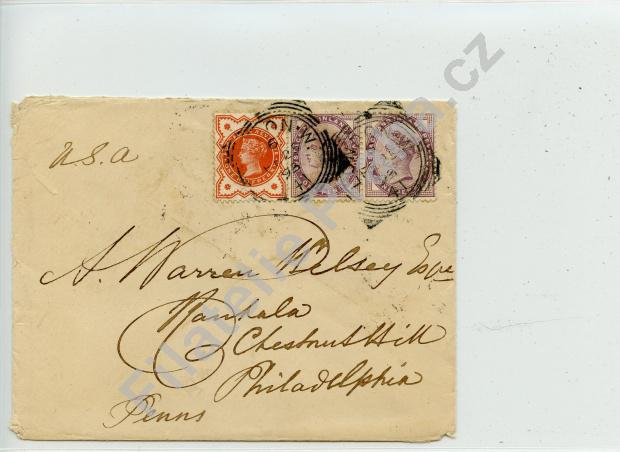 U.S.A
A. Warren Kelsey Esqre
Chestnut Hill
Philadelphia
Penns
Filatelie Praha.cz